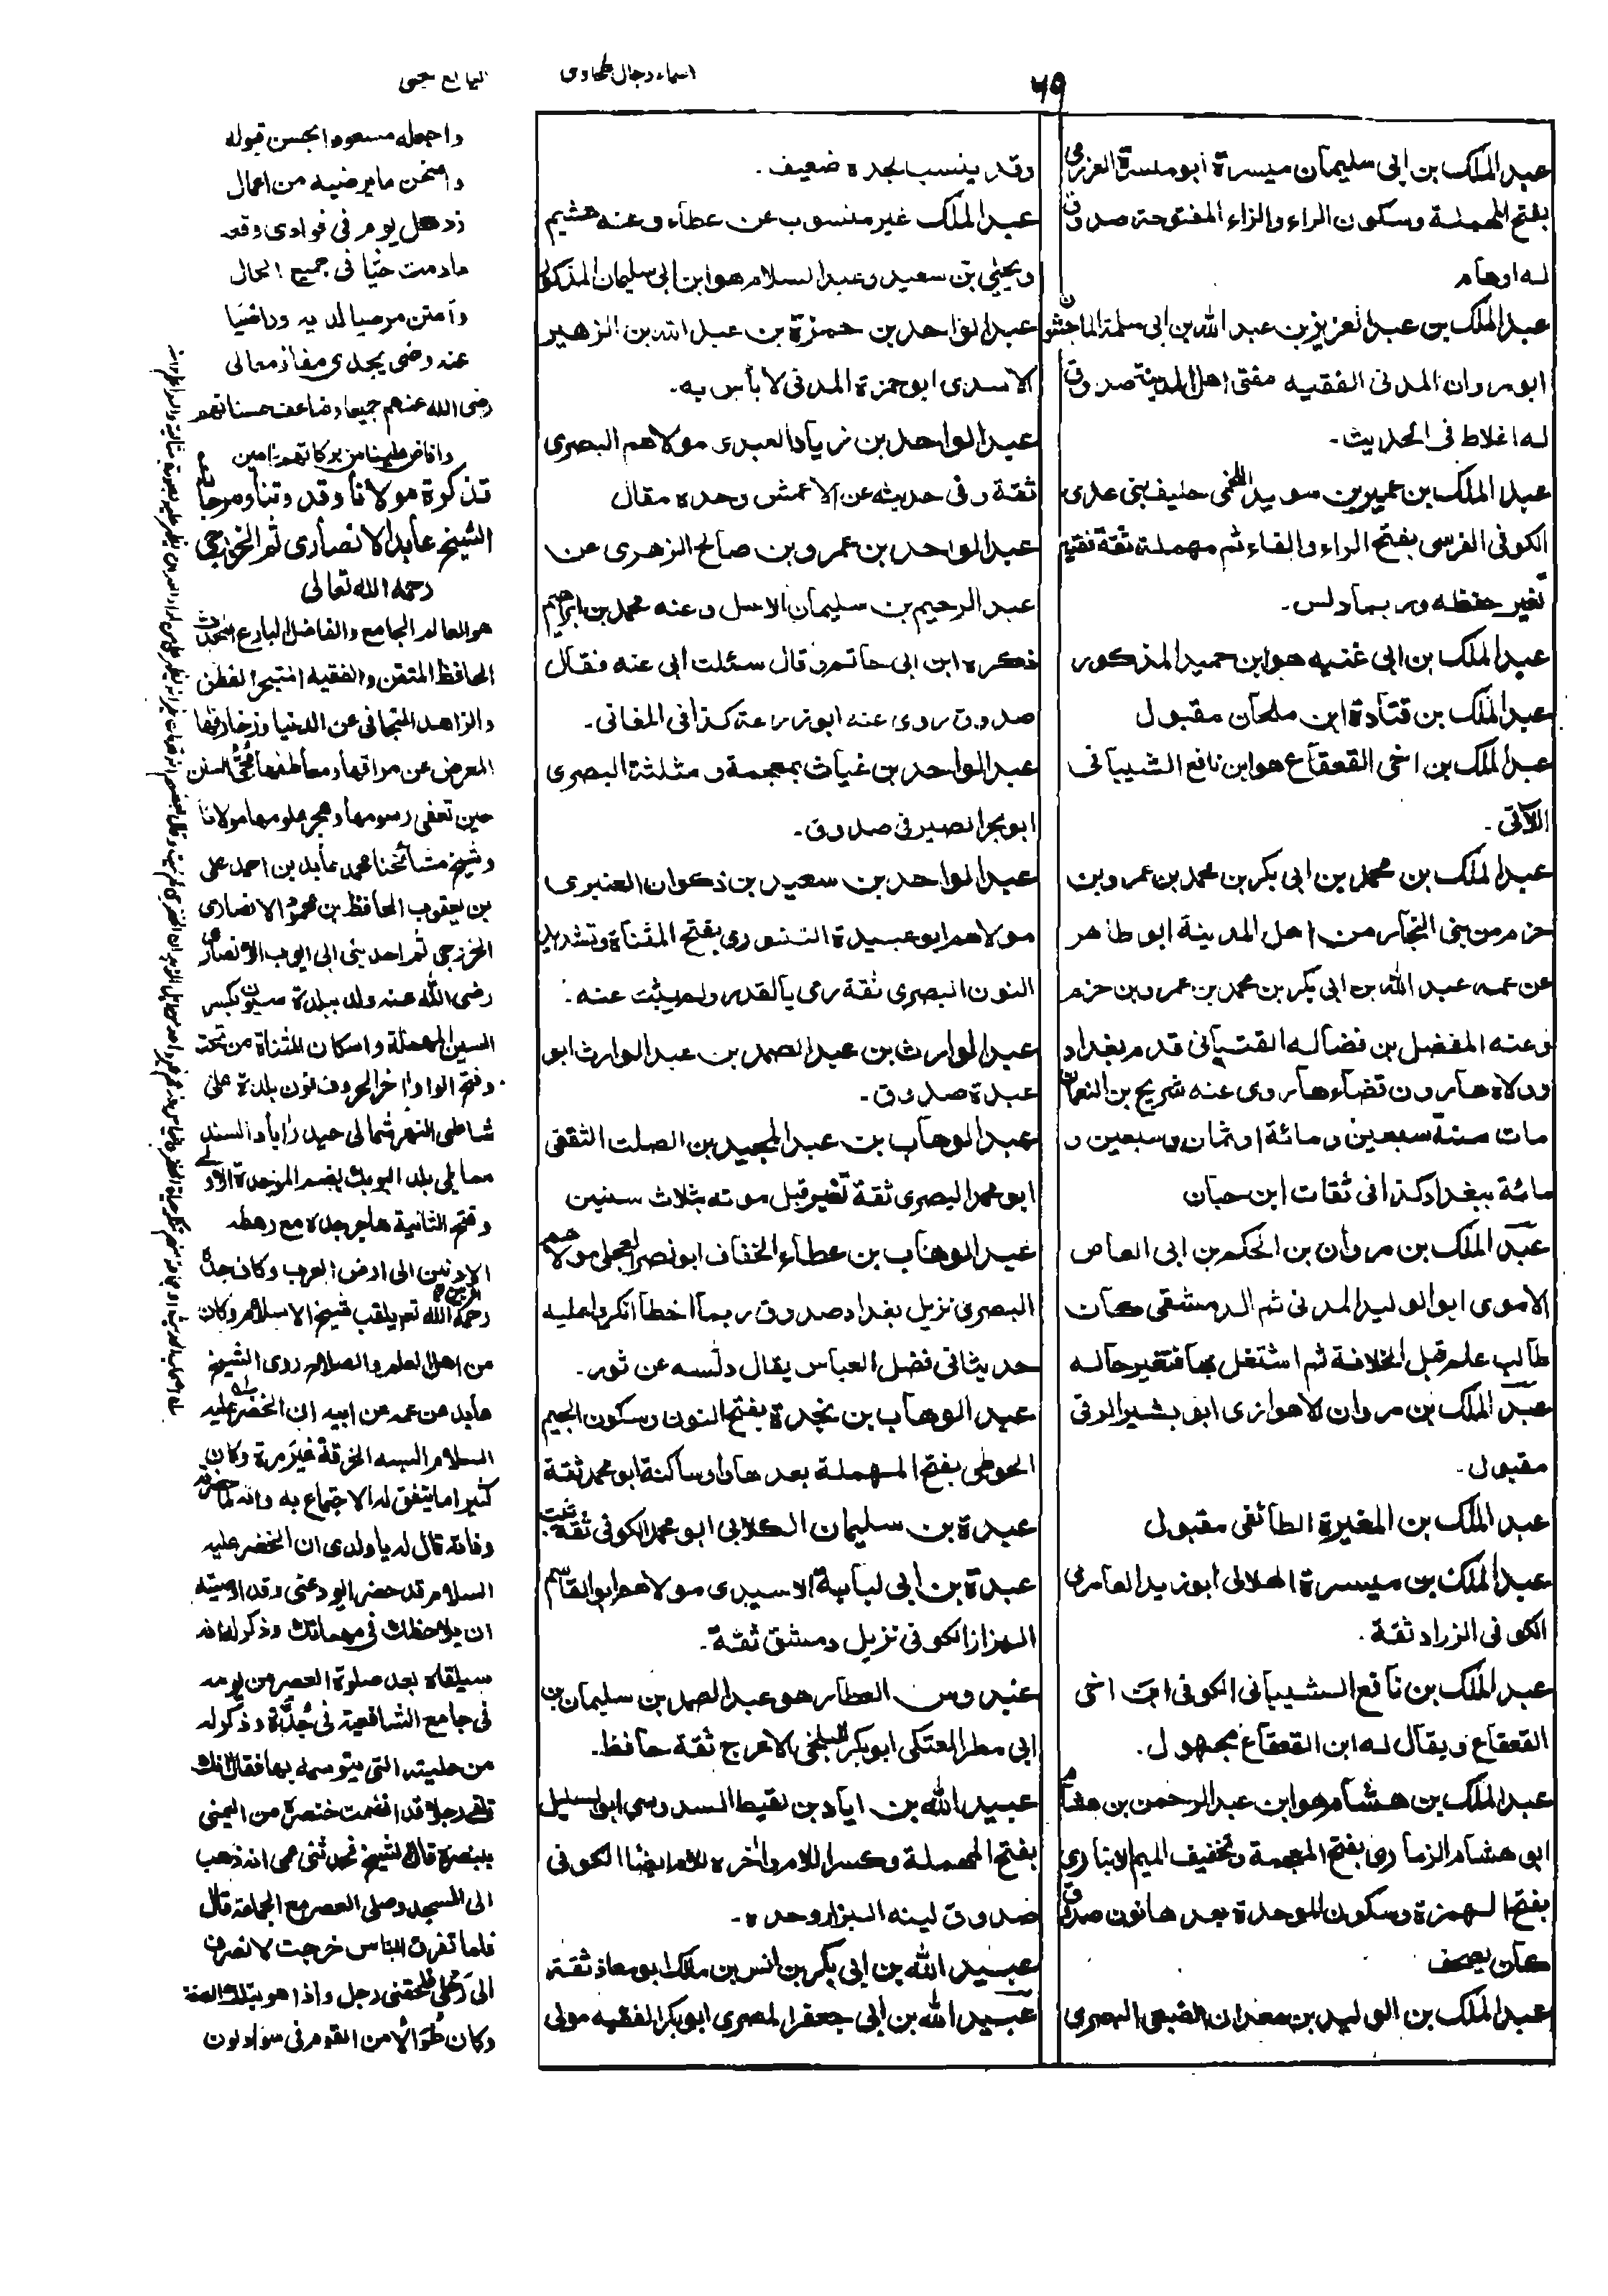 ٧٥
اسماء رجال طحاوی
اليانع الجنی
عبد الملک بن ابی سليمان ميسرة ابو ميسرة العرزمی
بفتح المهملة وسكون الراء والزاء المفتوحة صدوق
له اوهام
عبد الملک بن عبد العزيز بن عبد الله بن ابی سلمة الماجشون
ابو مروان المدنی الفقيه مفتی اهل المدينة صدوق
له اغلاط فی الحديث۔
عبد الملک بن عمير بن سويد اللخمی حليف بنی عدی
الكوفی الفرسی بفتح الراء والفاء ثم مهملة ثقة فقيه
تغير حفظه وربما دلس۔
عبد الملک بن ابی غنيه هو ابن حميد المذكور
عبد الملک بن قتادة ابن ملحان مقبول
عبد الملک بن اخی القعقاع هو ابن نافع الشيبانی
الآتی۔
عبد الملک بن محمد بن ابی بكر بن محمد بن عمرو بن
حزم من بنی النجار من اهل المدينة ابو طاهر
عن عمه عبد الله بن ابی بكر بن محمد بن عمرو بن حزم
وعنه المفضل بن فضاله القتبانی قدم بغداد
وولاه هارون قضاءها روی عنه شريح بن النعمان
مات سنة سبعين ومائة او ثمان وسبعين و
مائة ببغداد كذا فی ثقات ابن حبان
عبد الملک بن مروان بن الحكم بن ابی العاص
الاموی ابو الوليد المدنی ثم الدمشقی كان
طالب علم قبل الخلافة ثم اشتغل بها فتغير حاله
عبد الملک بن مروان الاهوازی ابو بشير الرقی
مقبول۔
عبد الملک بن المغيرة الطائفی مقبول
عبد الملک بن ميسرة الهلالی ابو زيد العامری
الكوفی الزراد ثقة۔
عبد الملک بن نافع الشيبانی الكوفی ابن اخی
القعقاع ويقال له ابن القعقاع مجهول۔
عبد الملک بن هشام هو ابن عبد الرحمن بن هشام
ابو هشام الذماری بفتح المعجمة وتخفيف الميم الابناری
بفتح الهمزة وسكون الموحدة بعدها نون صدوق
كان يصحف
عبد الملک بن الوليد بن معدان الضبعی البصری
وقد ينسب لجده ضعيف۔
عبد الملک غير منسوب عن عطاء وعنه هشيم
ويحيی بن سعيد وعبد السلام هو ابن ابی سليمان المذكور
عبد الواحد بن حمزة بن عبد الله بن الزهير
الاسدی ابو حمزة المدنی لا بأس به۔
عبد الواحد بن زياد العبدی مولاهم البصری
ثقة وفی حديثه عن الاعمش وحده مقال
عبد الواحد بن عمرو بن صالح الزهری عن
عبد الرحيم بن سليمان الاسل وعنه محمد بن ابراهيم
ذكره ابن ابی حاتم وقال سئلت ابی عنه فقال
صدوق روی عنه ابو زرعة كذا فی المغانی۔
عبد الواحد بن غياث بمعجمة ومثلثة البصری
ابو بحر الصيرفی صدوق۔
عبد الواحد بن سعيد بن ذكوان العنبری
مولاهم ابو عبيدة التنوری بفتح المثناة وتشديد
النون البصری ثقة رمی بالقدر ولم يثبت عنه۔
عبد الوارث بن عبد الصمد بن عبد الوارث ابو
عبدة صدوق۔
عبد الوهاب بن عبد المجيد بن الصلت الثقفی
ابو محمد البصری ثقة تغير قبل موته بثلاث سنين
عبد الوهاب بن عطاء الخفاف ابو نصر العجلی مولاهم
البصری نزيل بغداد صدوق ربما اخطأ انكروا عليه
حديثا فی فضل العباس يقال دلسه عن ثور۔
عبد الوهاب بن نجدة بفتح النون وسكون الجيم
الحوطی بفتح المهملة بعدها واو ساكنة ابو محمد ثقة
عبدة بن سليمان الكلابی ابو محمد الكوفی ثقة ثبت
عبدة بن ابی لبابة الاسيدی مولاهم ابو القاسم
البزاز الكوفی نزيل دمشق ثقة۔
عبدوس العطار هو عبد الصمد بن سليمان بن
ابی مطر العتكی ابو بكر البلخی الاعرج ثقة حافظ۔
عبيد الله بن اياد بن لقيط السدوسی ابو السليل
بفتح المهملة وكسر اللام وآخره لام ايضا الكوفی
صدوق لينه البزار وحده۔
عبيد الله بن ابی بكر بن انس بن مالک ابو معاذ ثقة
عبيد الله بن ابی جعفر المصری ابو بكر الفقيه مولی
واجعله مسعودا بحسن قبوله
وامنحن ما يرضيه من اعمال
زد هل يوم فی فوادی وقعه
ما دمت حيا فی جميع الحال
وامتن مرضيا لديه وراضيا
عنه رضی يجدی مفاز معالی
رضی الله عنهم جميعا وضاعف حسناتهم
وافاض علينا من بركاتهم امين
تذكرة مولانا وقدوتنا ومرجعنا
الشيخ عابد الانصاری ثم الخزرجی
رحمه الله تعالی
هو العالم الجامع والفاضل البارع المحدث
الحافظ المتقن والفقيه المتبحر الفطن
والزاهد المتجافی عن الدنيا وزخارفها
المعرض عن مراتبها ومعاطفها محی السنن
حين تعفی رسومها وهجر علومها مولانا
وشيخ مشائخنا محمد عابد بن احمد علی
بن يعقوب الحافظ بن محمود الانصاری
الخزرجی ثم احد بنی ابی ايوب الانصاری
رضی الله عنه ولد ببلدة سيون بكسر
السين المهملة واسكان المثناة من تحت
وفتح الواو اخر الحروف نون بلدة علی
شاطی النهر شمالی حيدراباد السند
مما يلی بلد البوبك بضم الموحدة الاولی
وفتح الثانية هاجر جده مع رهطه
الادنين الی ارض العرب وكان جده
رحمه الله تعم يلقب شيخ الاسلام وكان
من اهل العلم والصلاح روی الشيخ
عابد عن عمه عن ابيه ان الخضر عليه
السلام البسه الخرقة غير مرة وكان
كثيرا ما يتفق له الاجتماع به وانه لما حضرته
وفاته قال له يا ولدی ان الخضر عليه
السلام قد حضر ليودعنی وقد اوصيته
ان يلاحظك فی مهماتك وذكر له انه
سيلقاه بعد صلوة العصر من يومه
فی جامع الشافعية فی جدة وذكر له
من حليته التی يتوسمه بها فقال انك
تلقی رجلا قد انضمت خنصره من اليمنی
ببنصره قال الشيخ فحدثنی عمی انه ذهب
الی المسجد وصلی العصر مع الجماعة قال
فلما تفرق الناس خرجت لانصرف
الی رحلی فلحقنی رجل واذا هو بتلك الصفة
وكان طوالا من القوم فی سواد لون